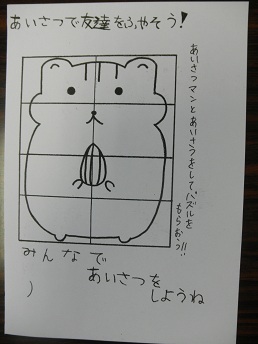 あいさつで友達をふやそう!
あいさつマンとあいさつをしてパズルを
もらおう!!
みんなで
あいさつを
しようね
)